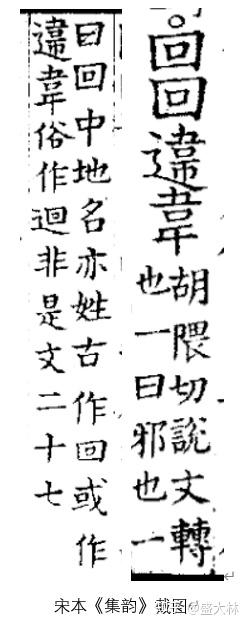 回回違韋
胡隈切說文轉
也一曰邪也一
曰回中地名亦姓古作回或作
違韋俗作迴非是文二十七
宋本《集韵》截图
@盛大林